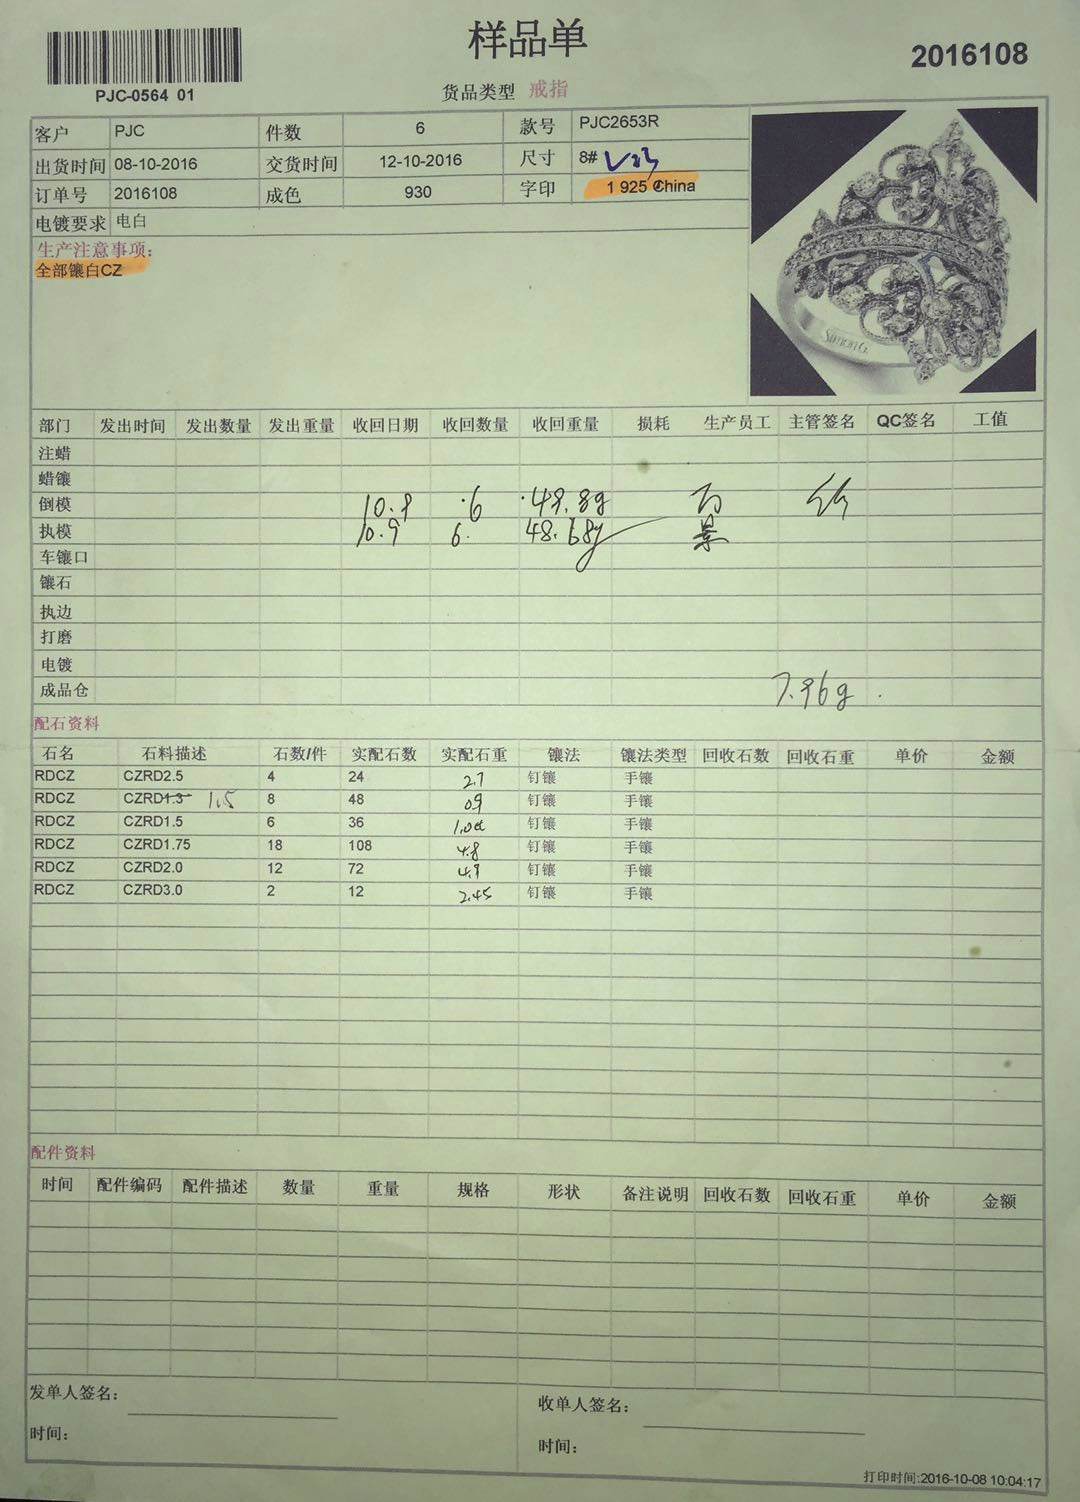 样品单
2016108
PJC-0564 01
货品类型 戒指
客户 PJC 件数 6 款号 PJC2653R
出货时间 08-10-2016 交货时间 12-10-2016 尺寸 8#
订单号 2016108 成色 930 字印 1 925 China
电镀要求 电白
生产注意事项:
全部镶白CZ
Simon G.
部门 发出时间 发出数量 发出重量 收回日期 收回数量 收回重量 损耗 生产员工 主管签名 QC签名 工值
注蜡
蜡镶
倒模 10.9 6 49.8g
执模 10.9 6. 48.68g 景
车镶口
镶石
执边
打磨
电镀
成品仓 7.96g
配石资料
石名 石料描述 石数/件 实配石数 实配石重 镶法 镶法类型 回收石数 回收石重 单价 金额
RDCZ CZRD2.5 4 24 2.7 钉镶 手镶
RDCZ CZRD1.3 1.5 8 48 0.9 钉镶 手镶
RDCZ CZRD1.5 6 36 钉镶 手镶
RDCZ CZRD1.75 18 108 4.8 钉镶 手镶
RDCZ CZRD2.0 12 72 4.9 钉镶 手镶
RDCZ CZRD3.0 2 12 2.45 钉镶 手镶
配件资料
时间 配件编码 配件描述 数量 重量 规格 形状 备注说明 回收石数 回收石重 单价 金额
发单人签名:
收单人签名:
时间:
时间:
打印时间:2016-10-08 10:04:17